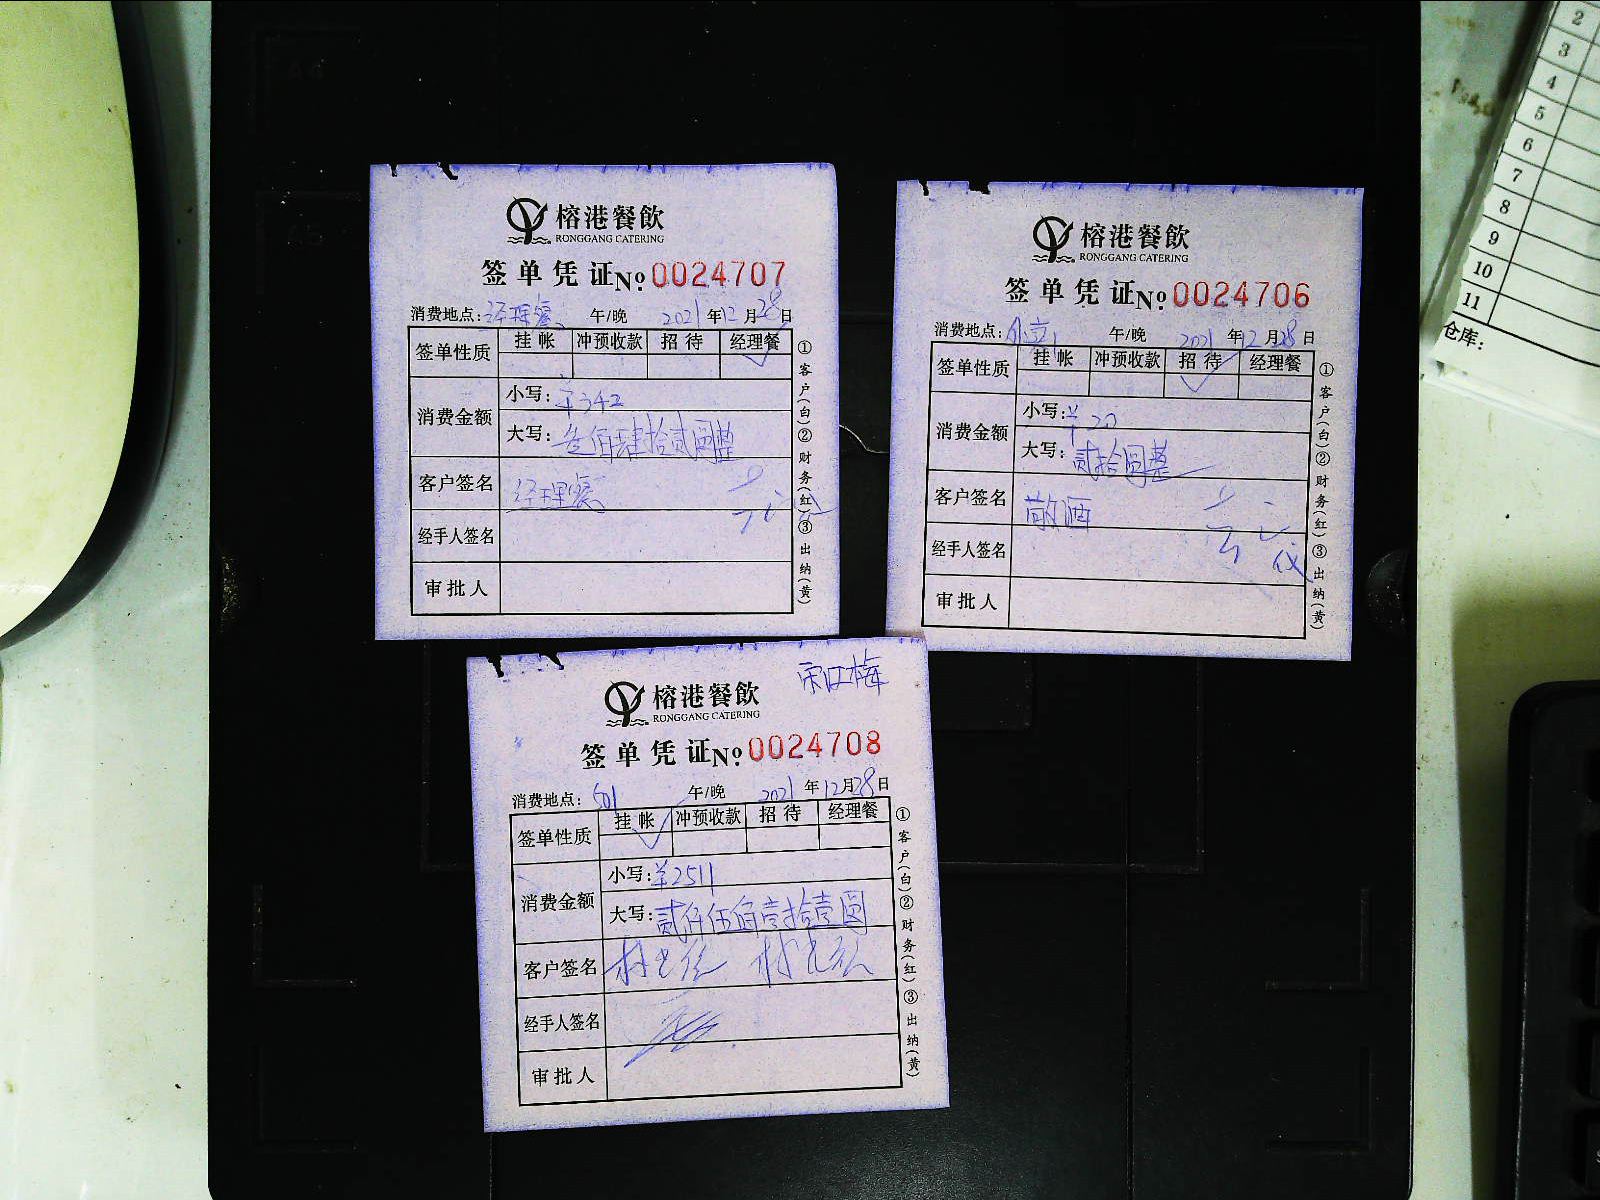 榕港餐飲
RONGGANG CATERING
签单凭证№0024707
消费地点:经理餐 午/晚 2021年12月28日
签单性质 挂帐 冲预收款 招待 经理餐
消费金额
小写:¥342
大写:叁佰肆拾贰圆整
客户签名 经理餐
经手人签名
审批人
①客户(白)②财务(红)③出纳(黄)
榕港餐飲
RONGGANG CATERING
签单凭证№0024706
消费地点: 午/晚 2021年12月28日
签单性质 挂帐 冲预收款 招待 经理餐
消费金额
小写:¥20
大写:贰拾圆整
客户签名 敬酒
经手人签名
审批人
①客户(白)②财务(红)③出纳(黄)
榕港餐飲
RONGGANG CATERING
签单凭证№0024708
消费地点: 午/晚 2021年12月28日
签单性质 挂帐 冲预收款 招待 经理餐
消费金额
小写:¥2511
大写:贰仟伍佰壹拾壹圆
客户签名
经手人签名
审批人
①客户(白)②财务(红)③出纳(黄)
2
3
4
5
6
7
8
9
10
11
仓库: